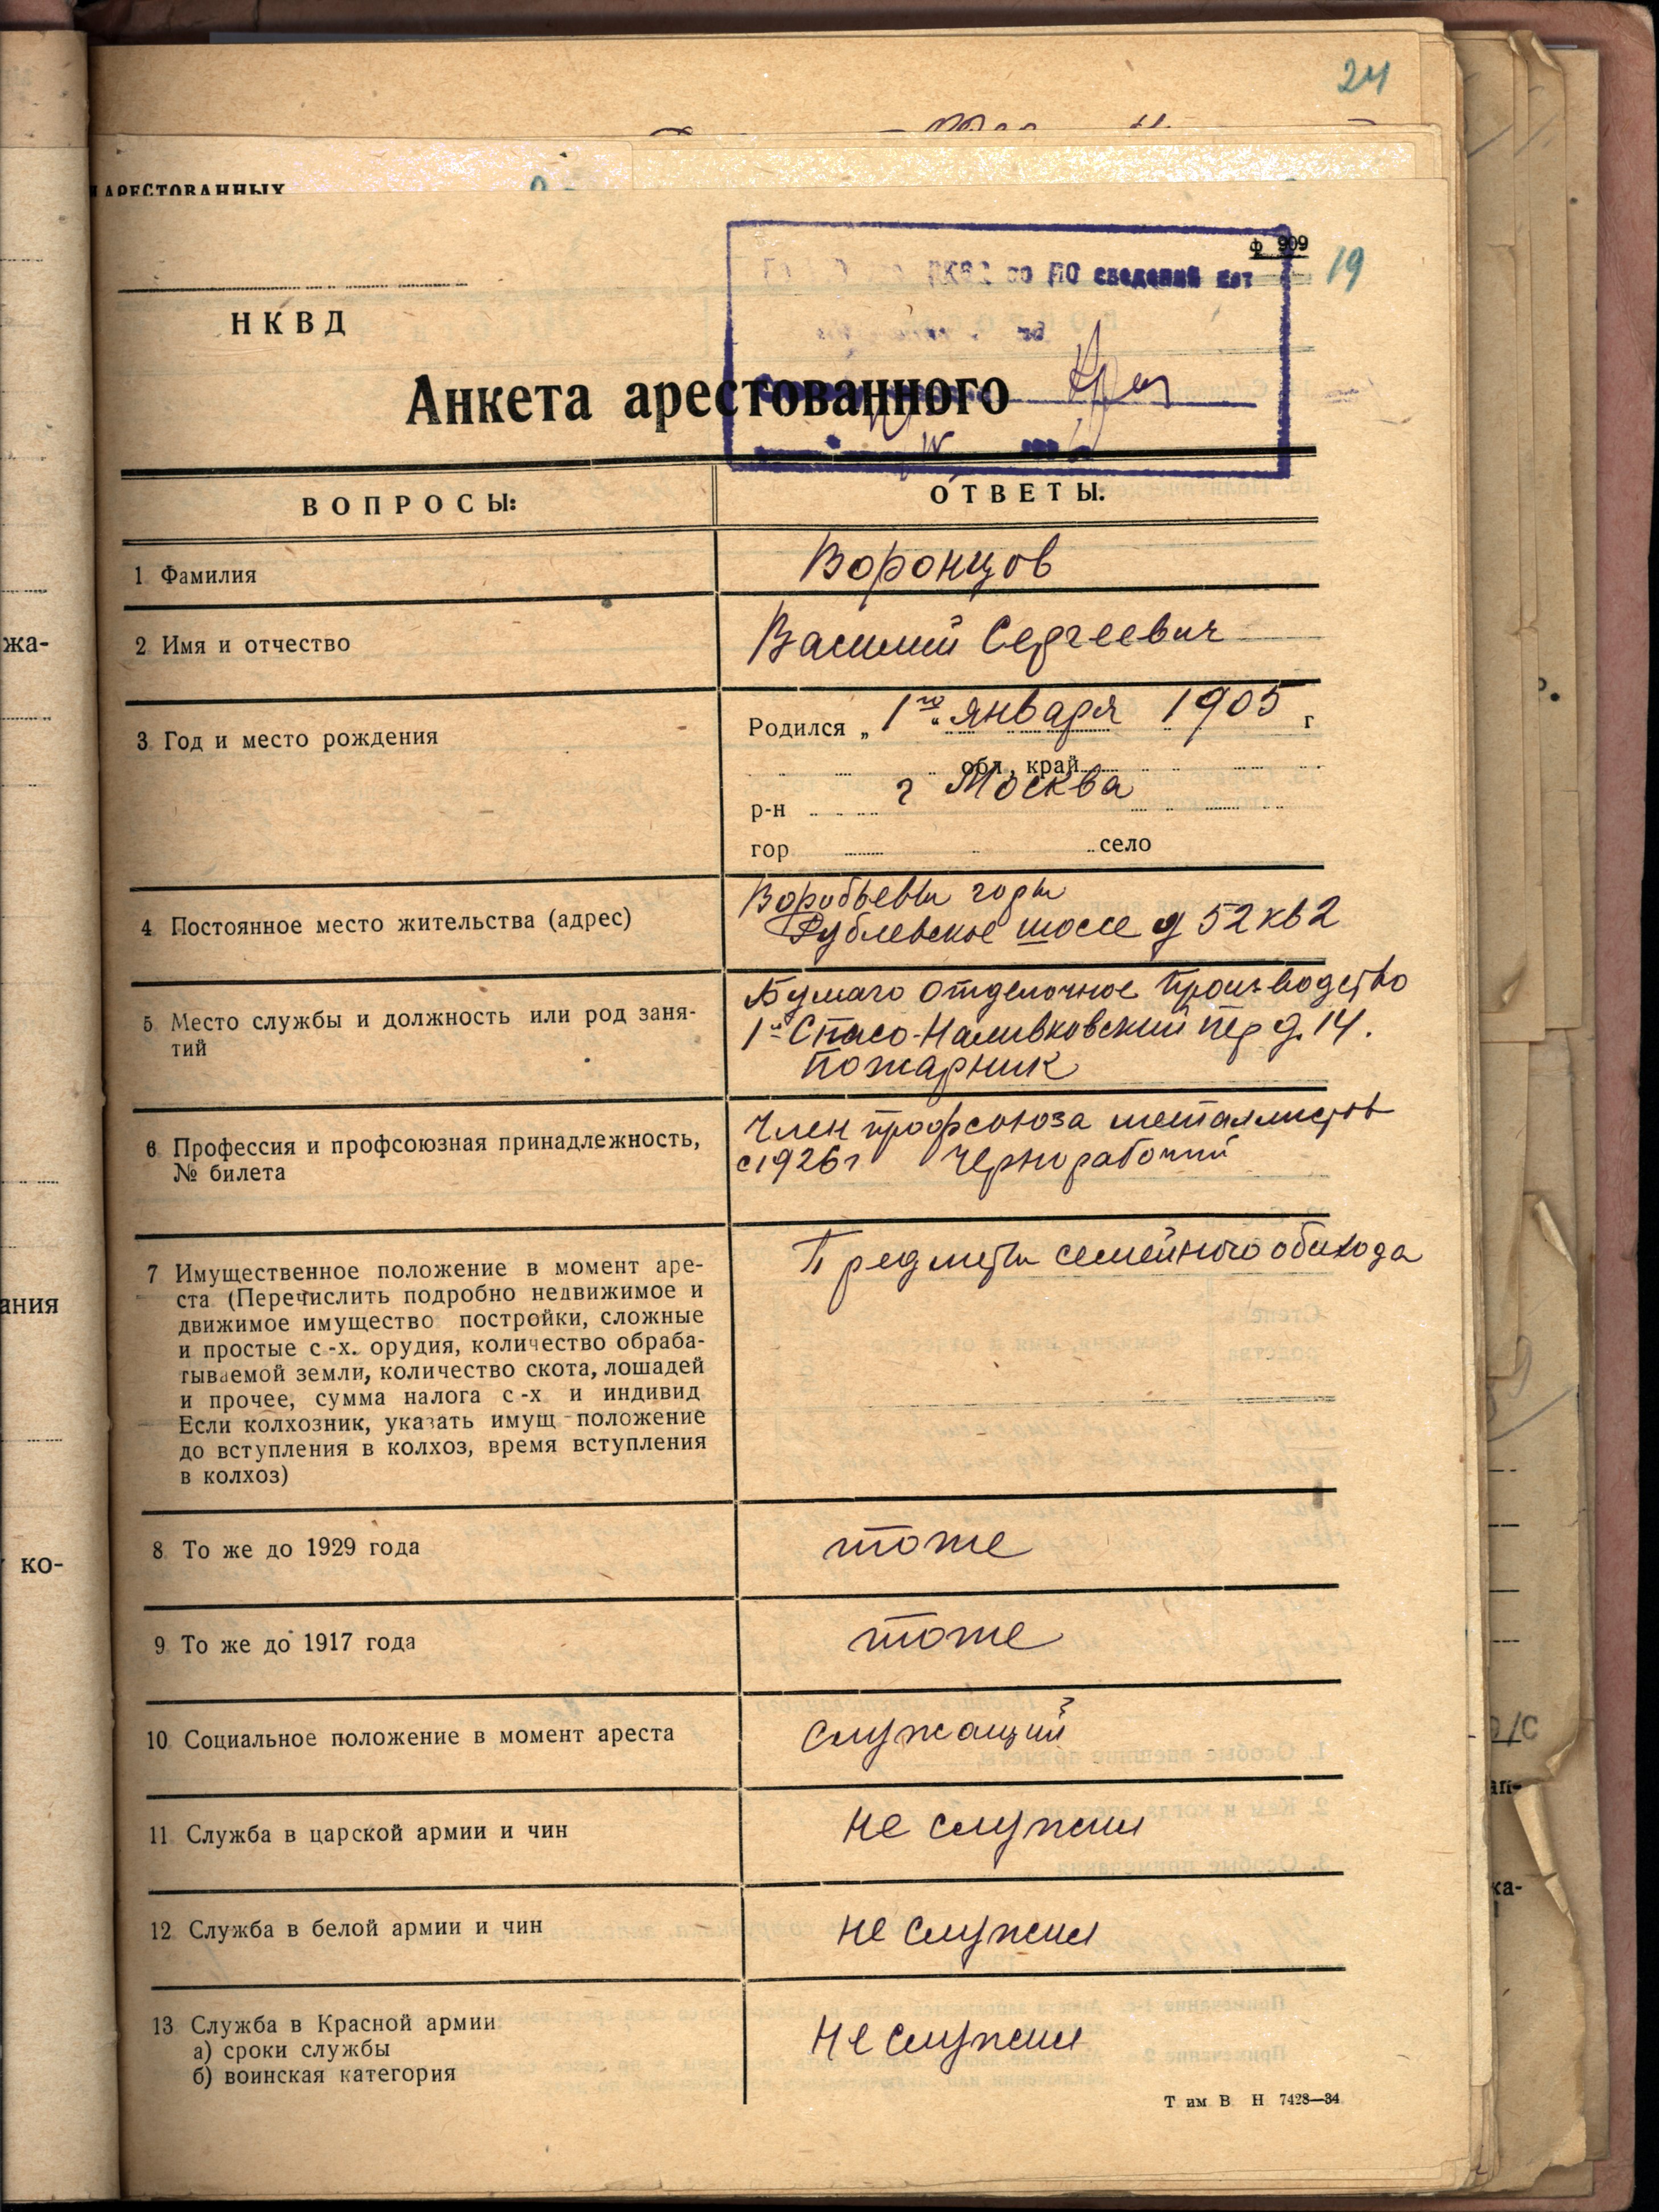 24
АРЕСТОВАННЫХ
ф 909
19
сведений нет
НКВД
Анкета арестованного
ВОПРОСЫ:
ОТВЕТЫ.
1 Фамилия
Воронцов
2 Имя и отчество
Василий Сергеевич
3 Год и место рождения
Родился „ 1го “ января 1905 г
обл, край
г Москва
р-н
гор село
4 Постоянное место жительства (адрес)
Воробьевы горы
Рублевское шоссе д 52 кв 2
5 Место службы и должность или род заня-
тий
Бумаго отделочное производство
1й Спасо-Наливковский пер д. 14.
пожарник
6 Профессия и профсоюзная принадлежность,
№ билета
Член профсоюза металлистов
с 1926 г Чернорабочий
7 Имущественное положение в момент аре-
ста (Перечислить подробно недвижимое и
движимое имущество постройки, сложные
и простые с-х. орудия, количество обраба-
тываемой земли, количество скота, лошадей
и прочее, сумма налога с-х и индивид
Если колхозник, указать имущ положение
до вступления в колхоз, время вступления
в колхоз)
Предметы семейного обихода
8 То же до 1929 года
тоже
9 То же до 1917 года
тоже
10 Социальное положение в момент ареста
служащий
11 Служба в царской армии и чин
не служил
12 Служба в белой армии и чин
не служил
13 Служба в Красной армии
а) сроки службы
б) воинская категория
Не служил
Т им В Н 7428—34
жа-
ания
ко-